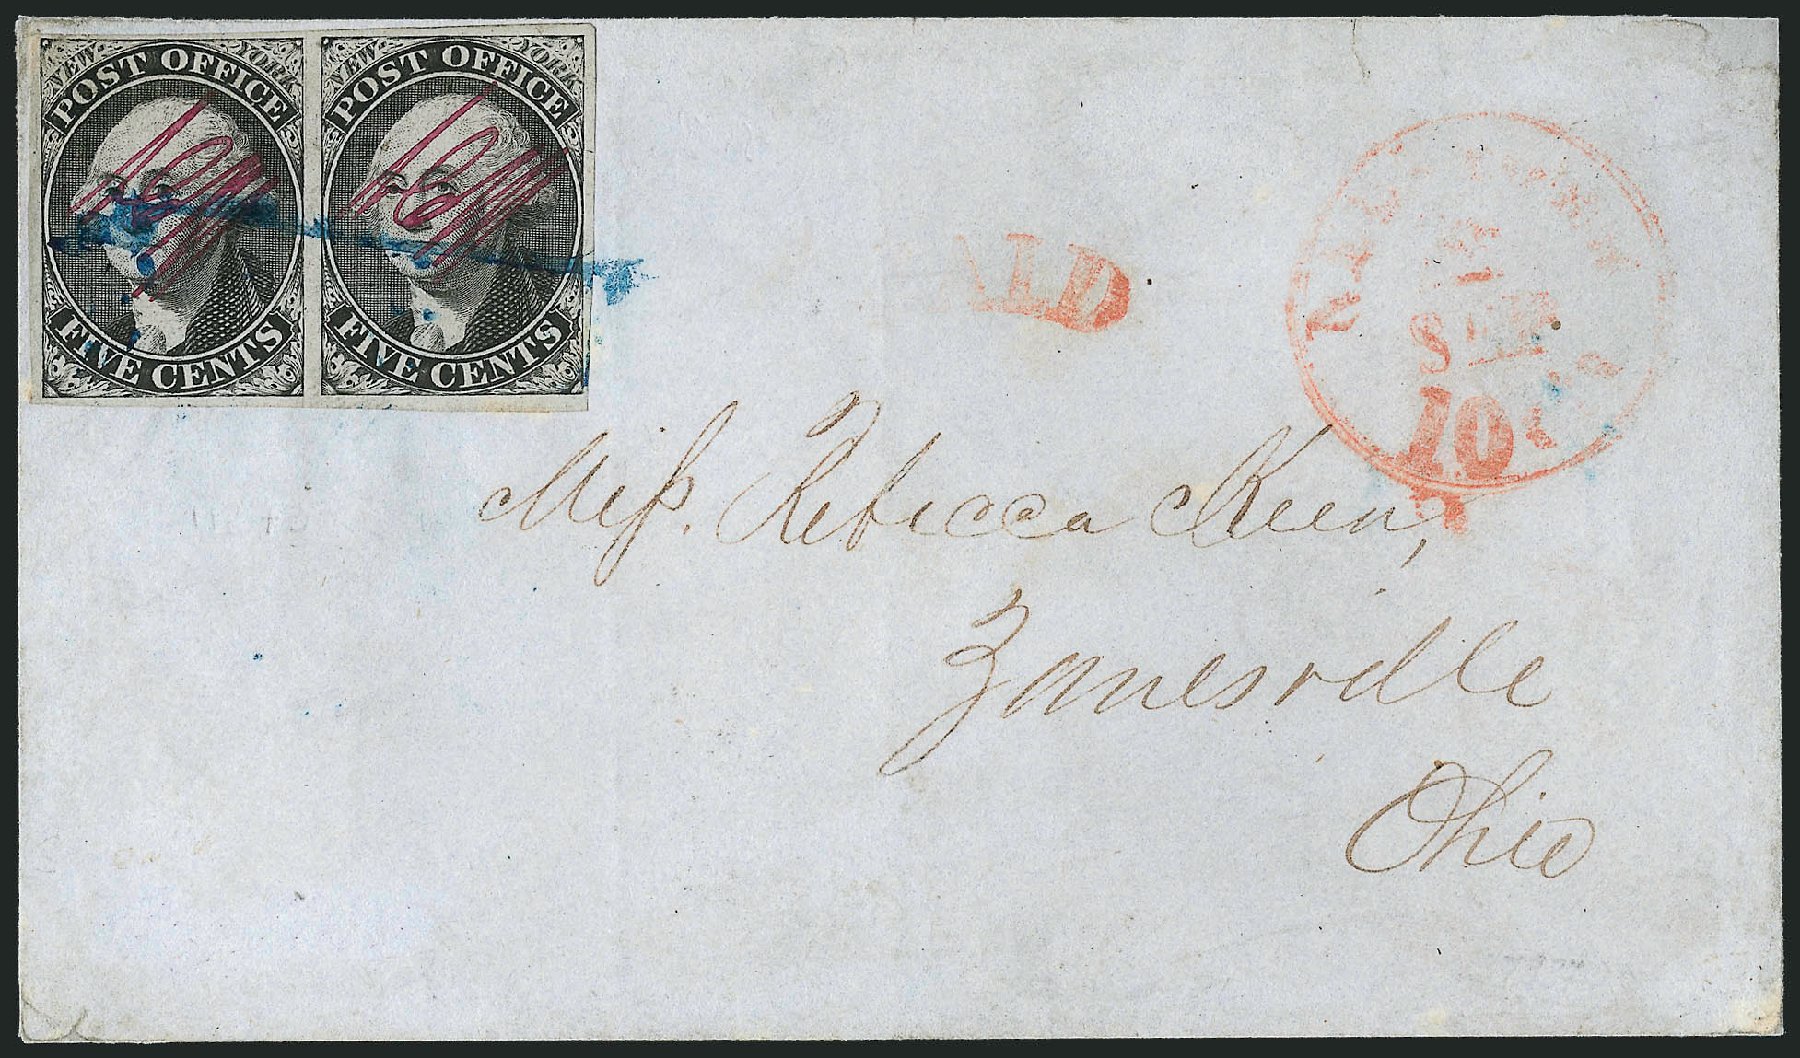 NEW YORK
POST OFFICE
FIVE CENTS
NEW YORK
POST OFFICE
FIVE CENTS
AID
NEW-YORK
1
SEP
10 cts
Miss. Rebecca Keen,
Zanesville
Ohio